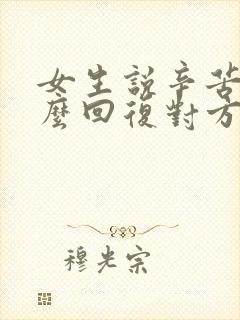 女生說辛苦
麼回復對方
穆光宗